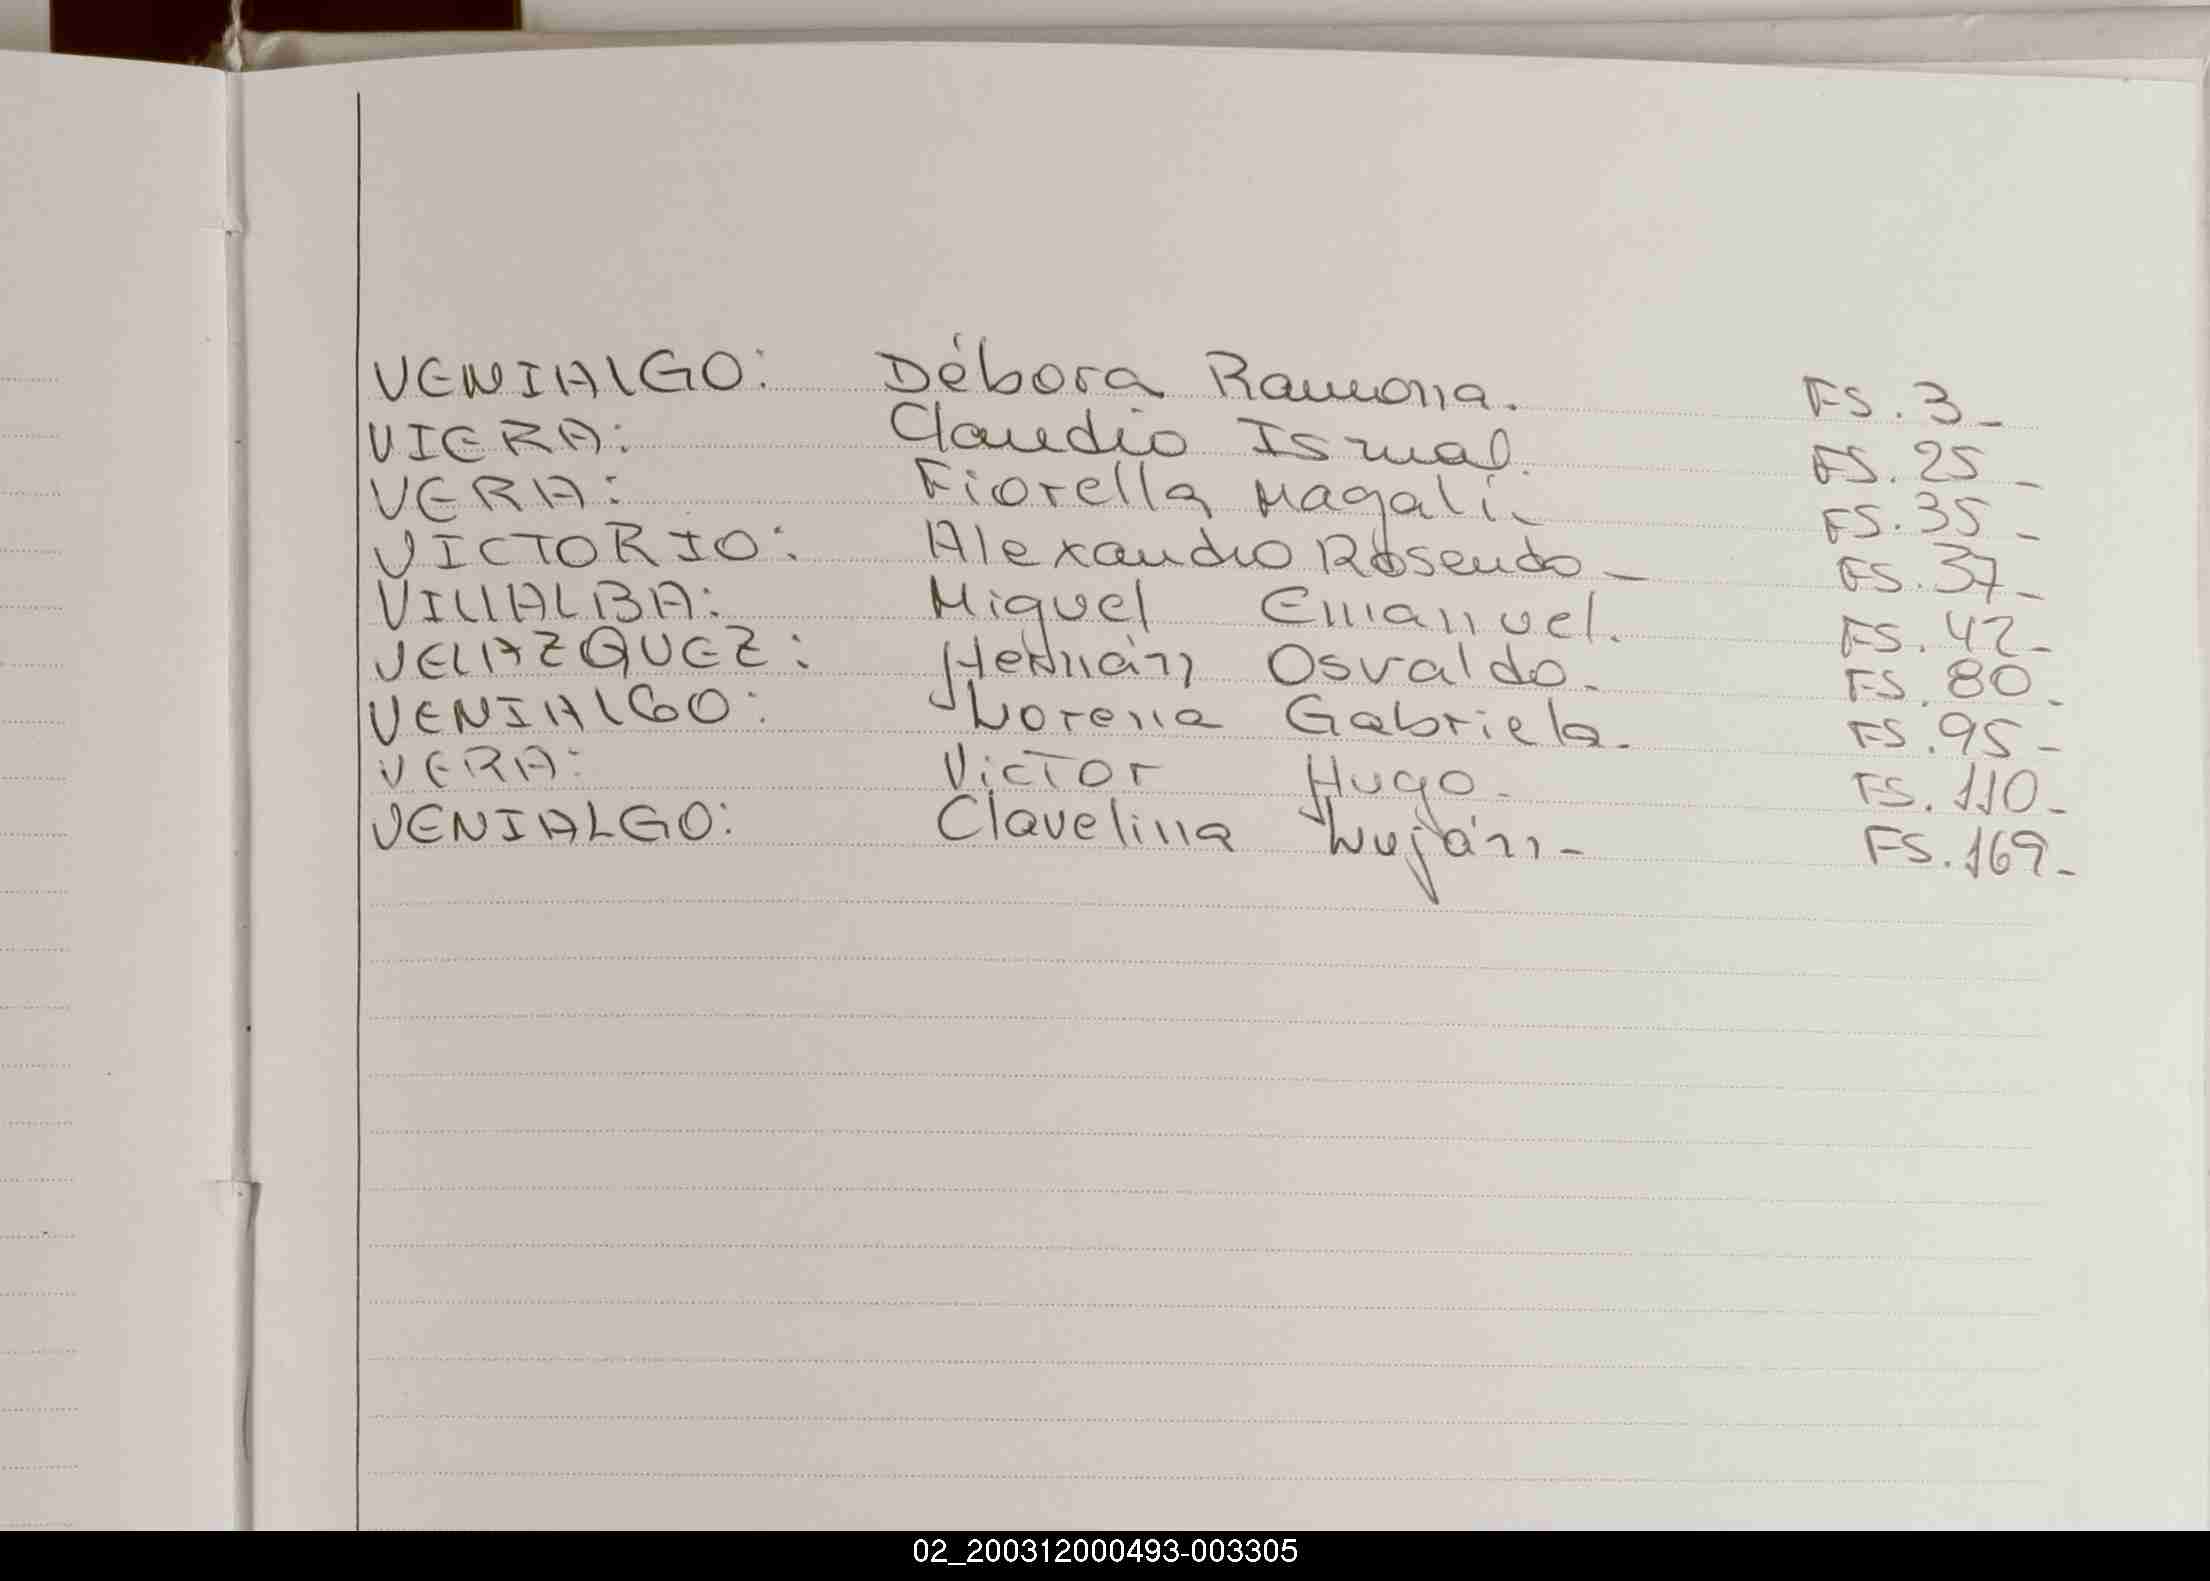 VENIALGO: Débora Ramona. FS. 3_
VIERA: Claudio Ismal. FS. 25_
VERA: Fiorella Magalí. FS. 35_
VICTORIO: Alexandro Rosendo_ FS. 37_
VILLALBA: Miguel Emanuel. FS. 42_
VELAZQUEZ: Hernán Osvaldo. FS. 80_
VENIALGO: Lorena Gabriela. FS. 95_
VERA: Victor Hugo. FS. 110_
VENIALGO: Clavelina Luján_ FS. 169_
02_200312000493-003305